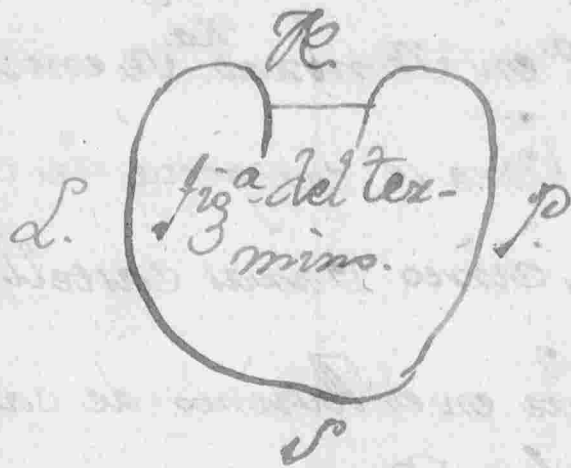 N.
L.
fig.ª del ter-
mino.
P.
S